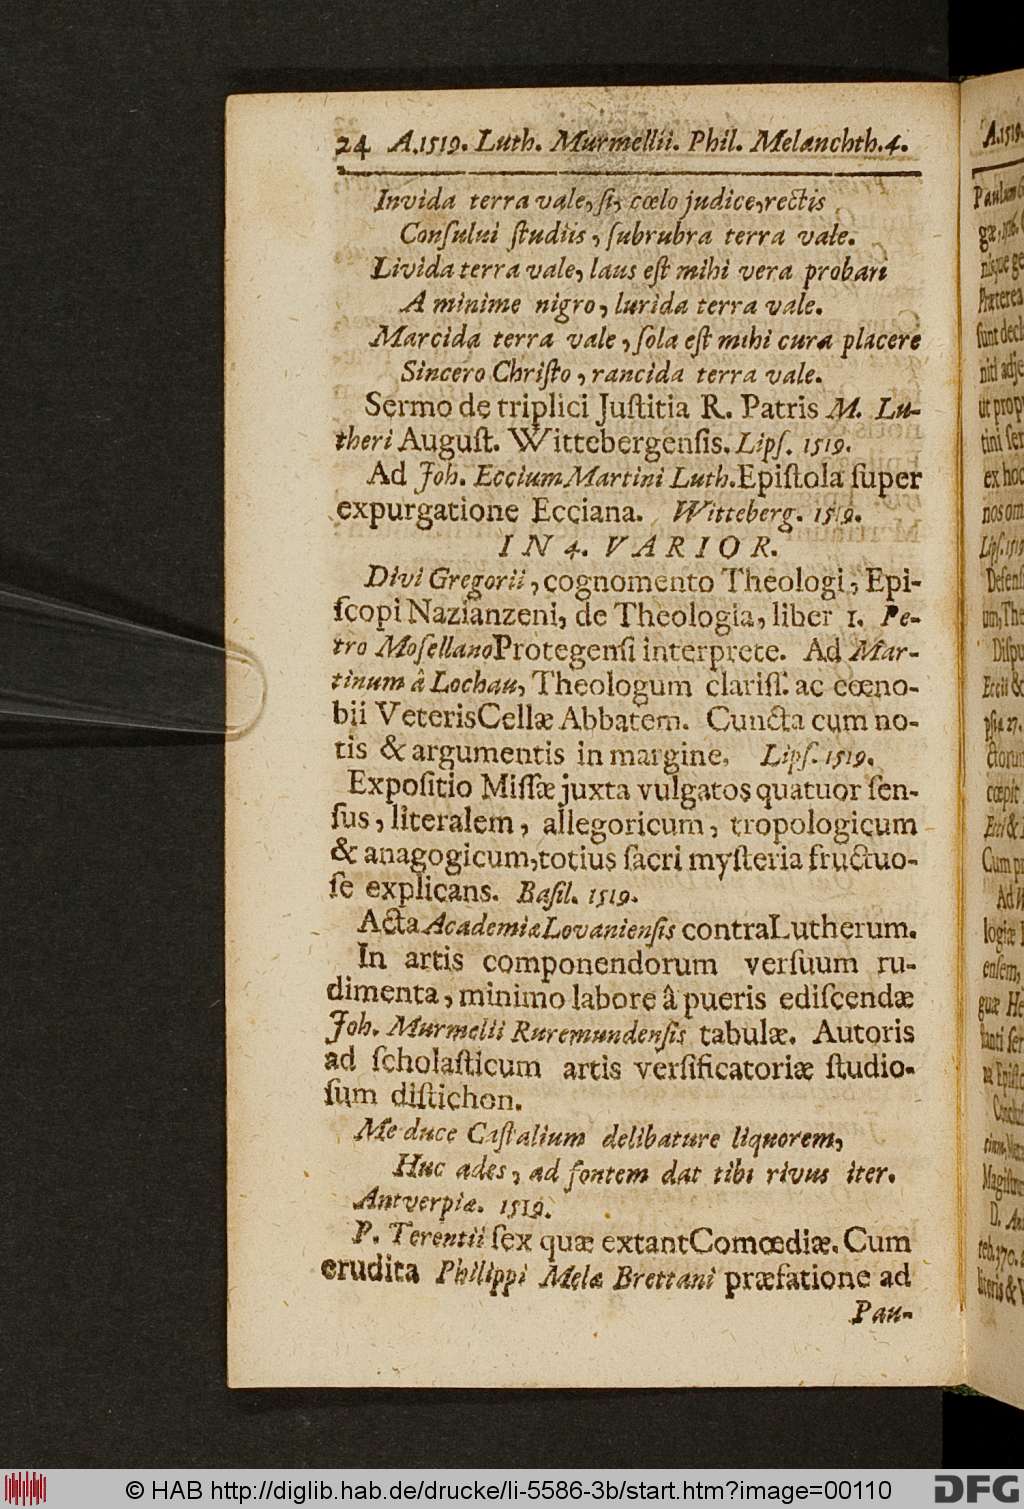 24 A. 1519. Luth. Murmellii. Phil. Melanchth. 4.
Invida terra vale, ſi, cœlo judice, rectis
Conſului ſtudiis, ſubrubra terra vale.
Livida terra vale, laus eſt mihi vera probari
A minime nigro, lurida terra vale.
Marcida terra vale, ſola eſt mihi cura placere
Sincero Chriſto, rancida terra vale.
Sermo de triplici Juſtitia R. Patris M. Lu-
theri Auguſt. Wittebergenſis. Lipſ. 1519.
Ad Joh. Eccium Martini Luth. Epiſtola ſuper
expurgatione Ecciana. Witteberg. 1519.
IN 4. VARIOR.
Divi Gregorii, cognomento Theologi, Epi-
ſcopi Nazianzeni, de Theologia, liber 1. Pe-
tro Moſellano Protegenſi interprete. Ad Mar-
tinum â Lochau, Theologum clariſſ. ac cœno-
bii Veteris Cellæ Abbatem. Cuncta cum no-
tis & argumentis in margine. Lipſ. 1519.
Expoſitio Miſſæ juxta vulgatos quatuor ſen-
ſus, literalem, allegoricum, tropologicum
& anagogicum, totius ſacri myſteria fructuo-
ſe explicans. Baſil. 1519.
Acta Academiæ Lovanienſis contra Lutherum.
In artis componendorum verſuum ru-
dimenta, minimo labore â pueris ediſcendæ
Joh. Murmelii Ruremundenſis tabulæ. Autoris
ad ſcholaſticum artis verſificatoriæ ſtudio-
ſum diſtichon.
Me duce Caſtalium delibature liquorem,
Huc ades, ad fontem dat tibi rivus iter.
Antverpiæ. 1519.
P. Terentii ſex quæ extant Comœdiæ. Cum
erudita Philippi Melæ Brettani præfatione ad
Pau-
A. 1519.
© HAB http://diglib.hab.de/drucke/li-5586-3b/start.htm?image=00110
DFG